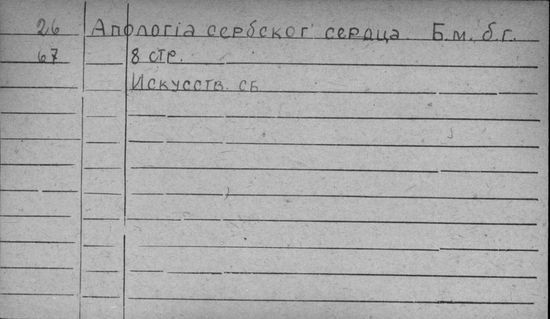 26 Апологія сербског сердца. Б.м. б.г.
67 8 стр.
Искусств. сб